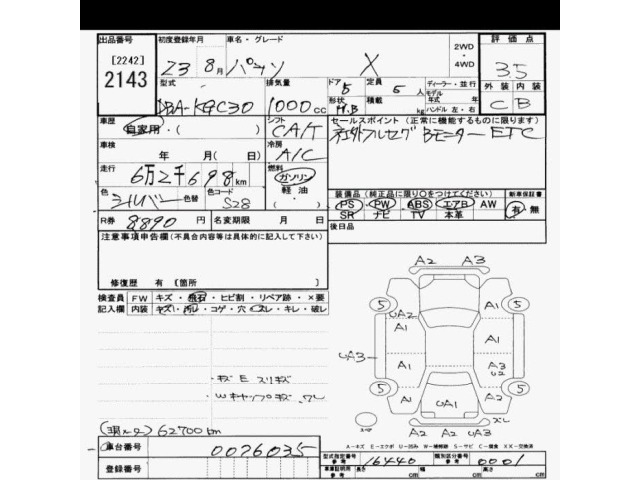 出品番号 初度登録年月 車名・グレード 2WD 評価点
[2242] 23 8月 パッソ X 4WD 35
2143 型式 排気量 ドア 定員 ディーラー・並行 外装 内装
DBA-KGC30 1000cc 5 5人 モデル 年式 年 C B
形状 積載 kg ハンドル 左・右
H.B
車歴 シフト セールスポイント(正常に機能するものに限ります)
自家用・( ) CA/T 社外フルセグ Bモニター ETC
車検 冷房
年 月(日) A/C
走行 燃料
6万2千698km ガソリン
色 色替 色コード 軽油
シルバー S28 装備品(純正品に限り○をつけてください) 新車保証書
PS・PW・ABS・エアB・AW 有・無
SR ナビ TV 本革
R券 8890円 名変期限 月 日 後日品
注意事項申告欄(不具合内容等は具体的に記入して下さい)
修復歴 有 〔箇所
検査員 FW キズ・飛石・ヒビ割・リペア跡・×要
記入欄 内装 キズ・汚レ・コゲ・穴・スレ・キレ・破レ
A2 A3
5 5
UA2 A1
A1
UA3 A1 A3
U2
5 5
UA1
A2 A2 UA3 ズレ
・キズ E スリキズ
・Wキャップキズ、ワレ
(現メータ) 62700km
スペア
A-キズ E-エクボ U-凹み W-補修跡 S-サビ C-腐食 XX-交換済
車台番号 0026035 型式指定番号 参考 16440 類別区分番号 参考 0001
登録番号 車庫証明用 参考 長さ cm 幅 cm 高さ cm